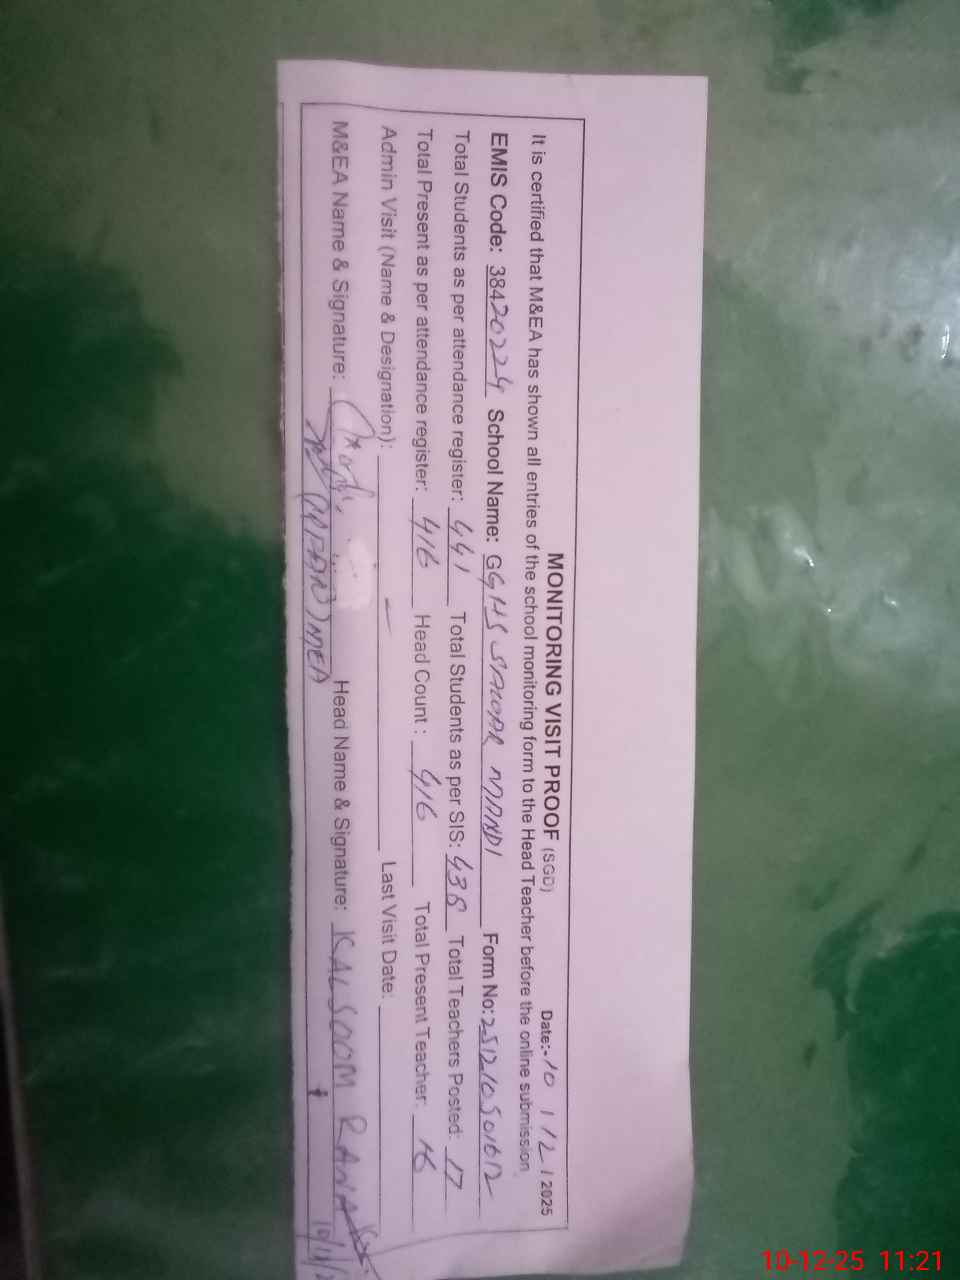 MONITORING VISIT PROOF (SGD) Date:- 10 / 12 / 2025
It is certified that M&EA has shown all entries of the school monitoring form to the Head Teacher before the online submission
EMIS Code: 38420224 School Name: GGHS SALOAR MANDI Form No: 251210501612
Total Students as per attendance register: 441 Total Students as per SIS: 438 Total Teachers Posted: 17
Total Present as per attendance register: 416 Head Count : 416 Total Present Teacher: 16
Admin Visit (Name & Designation): — Last Visit Date:
M&EA Name & Signature: Head Name & Signature: KALSOOM RANA
MEA
10-12-25 11:21